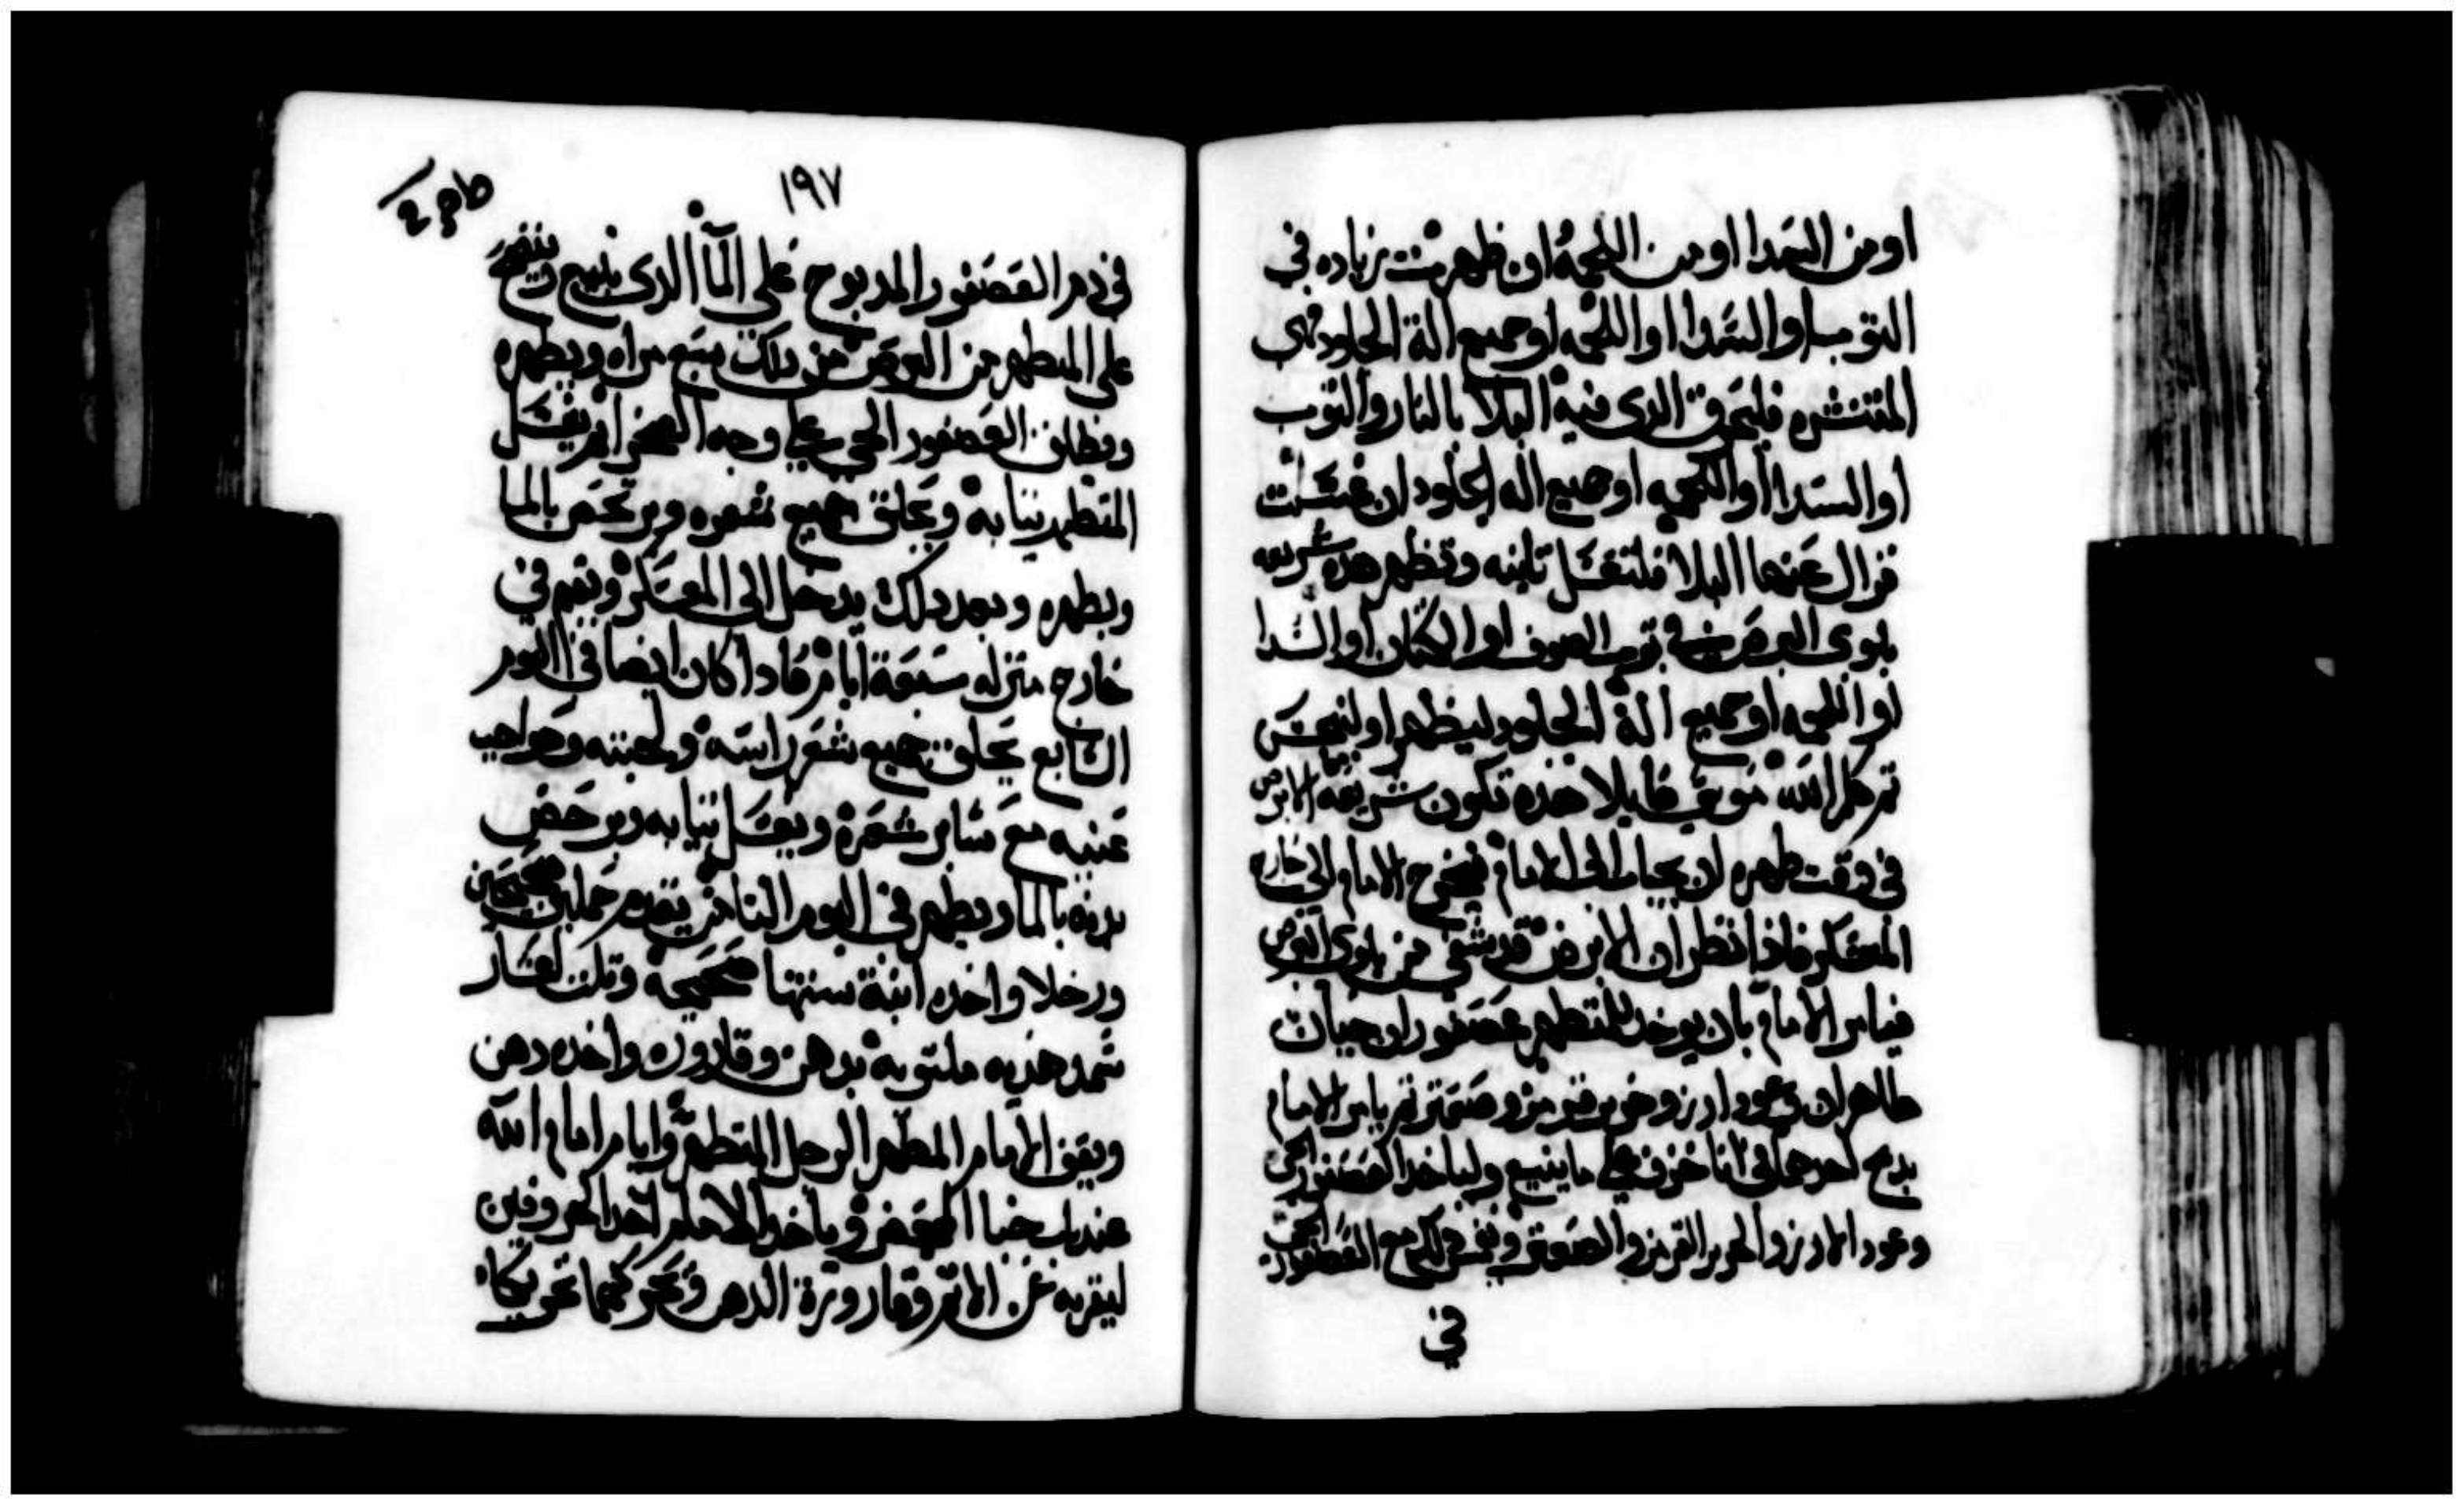 او من السدا او من اللحمه ان ظهرت زياده في
التوب او السدا او اللحمه او جميع الة الجلود فهى
المنتشره فليحرق الدى فيه البلا بالنار والتوب
او السدا او اللحمه او جميع اله الجلود ان غسلت
فزال عنها البلا فلتغسل تانيه وتطهر هده شريعه
بلوى البرص في توب الصوف او الكتان او السدا
او اللحمه او جميع الة الجلود ليطهر او لينجس
تم كلم الله موسى قايلا هذه تكون شريعة الابرص
في وقت طهره ان يجاب الى الامام فيخرج الامام الى خارج
المعسكر فاذا نظر ان الابرص قد شفي من بلوى البرص
فيامر الامام بان يوخد للمتطهر عصفوران حيان
طاهران وعود ارز وحرير قرمز وصعتر تم يامر الامام
بدبح احدهما في انا خزف على ما ينبع ولياخد العصفور الحي
وعود الارز والحرير القرمز والصعتر ويغمس دلك مع العصفور الحي
في
١٩٧
في دم العصفور المدبوح على المآ الدى ينبع وينضح
على المتطهر من البرص من دلك سبع مراه ويطهره
ويطلق العصفور الحي على وجه الصحرا تم يغسل
المتطهر تيابه ويحلق جميع شعره ويرحض بالما
ويطهره وبعد دلك يدخل الى المعسكر ويقيم في
خارج منزله سبعة ايام فادا كان ايضا في اليوم
السابع يحلق جميع شعر راسه ولحيته وحواجب
عينيه مع ساير شعره ويغسل تيابه ويرحض
بدنه بالما ويطهر في اليوم التامن يقدم حملين صحيحين
ورخلا واحده ابنة سنتها صحيحه وتلت اعشار
سميد هديه ملتوته بدهن وقاروره واحده دهن
ويقف الامام المطهر الرجل المتطهر واياهم امام الله
عند باب خبا المحضر وياخد الامام احد الخروفين
ليقربه عن الاتم وقارورة الدهن ويحركهما تحريكاه